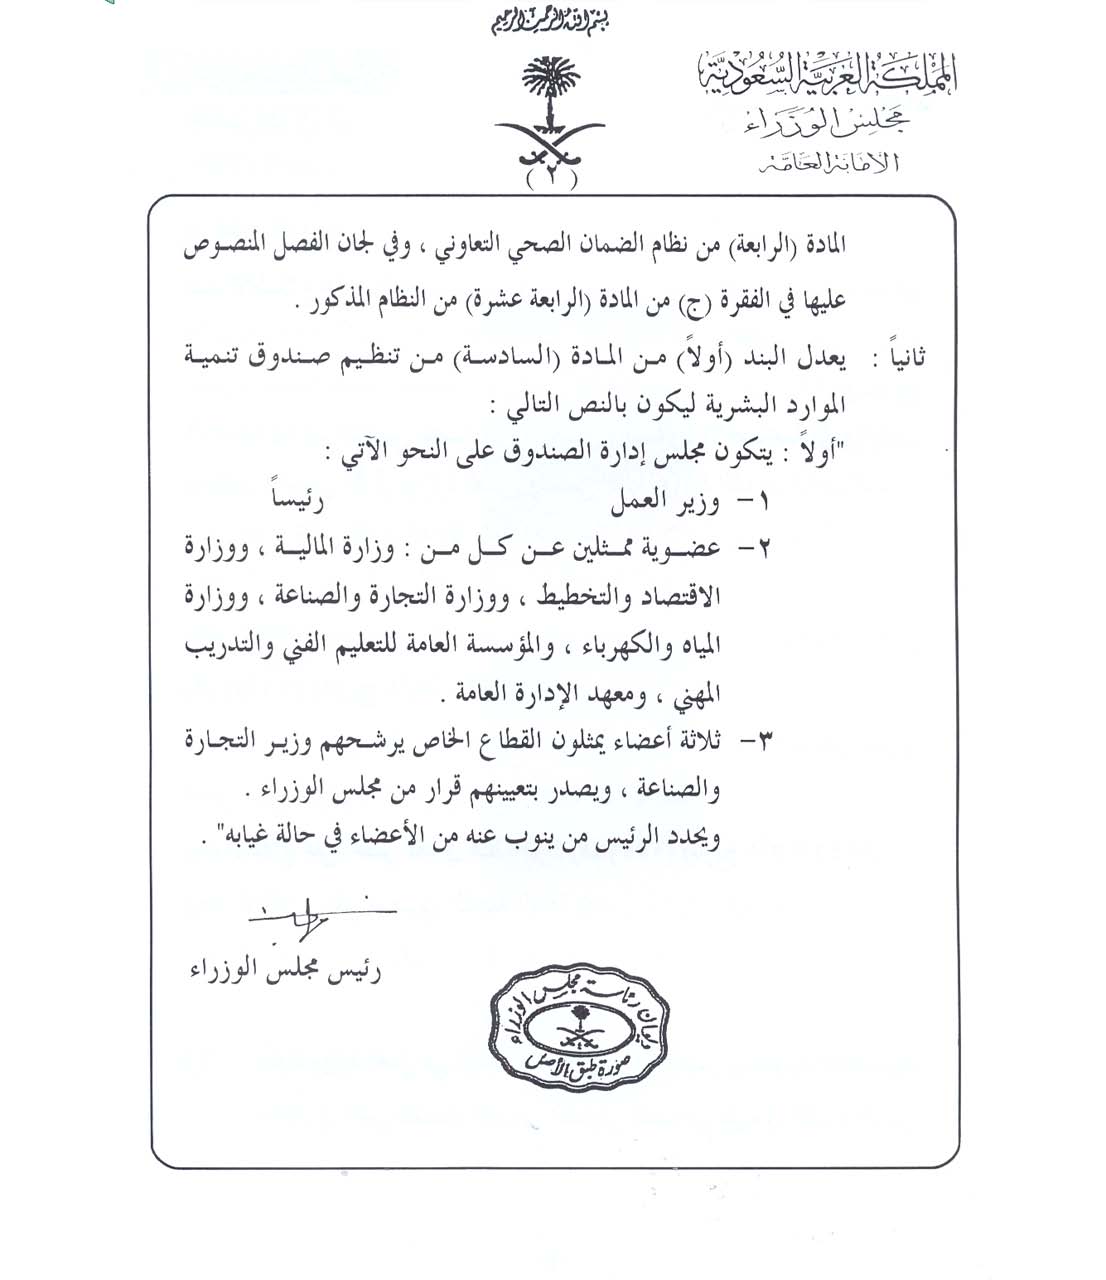 بسم الله الرحمن الرحيم
المملكة العربية السعودية
مجلس الوزراء
الأمانة العامة
(٢)
المادة (الرابعة) من نظام الضمان الصحي التعاوني ، وفي لجان الفصل المنصوص
عليها في الفقرة (ج) من المادة (الرابعة عشرة) من النظام المذكور .
ثانياً : يعدل البند (أولاً) من المادة (السادسة) من تنظيم صندوق تنمية
الموارد البشرية ليكون بالنص التالي :
"أولاً : يتكون مجلس إدارة الصندوق على النحو الآتي :
١- وزير العمل رئيساً
٢- عضوية ممثلين عن كل من : وزارة المالية ، ووزارة
الاقتصاد والتخطيط ، ووزارة التجارة والصناعة ، ووزارة
المياه والكهرباء ، والمؤسسة العامة للتعليم الفني والتدريب
المهني ، ومعهد الإدارة العامة .
٣- ثلاثة أعضاء يمثلون القطاع الخاص يرشحهم وزير التجارة
والصناعة ، ويصدر بتعيينهم قرار من مجلس الوزراء .
ويحدد الرئيس من ينوب عنه من الأعضاء في حالة غيابه" .
رئيس مجلس الوزراء
ديوان رئاسة مجلس الوزراء
صورة طبق الأصل